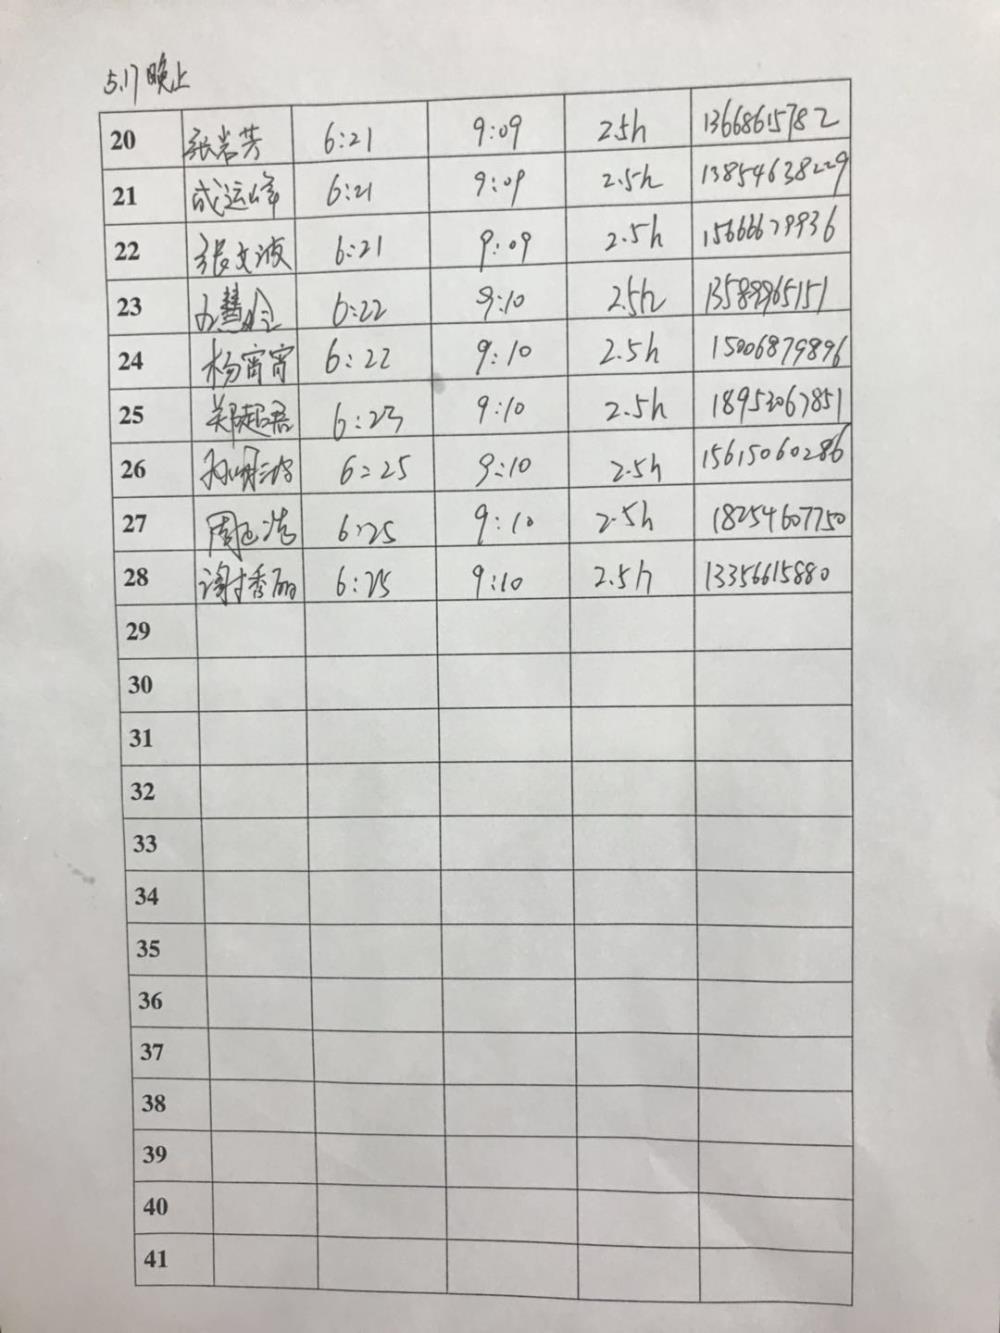 5.17晚上
20 张岩芳 6:21 9:09 2.5h 13668615782
21 成运峰 6:21 9:09 2.5h 13854638229
22 张文波 6:21 9:09 2.5h 15666679936
23 慧 6:22 9:10 2.5h 13589965151
24 杨宵宵 6:22 9:10 2.5h 15006879896
25 郑超君 6:23 9:10 2.5h 18953067851
26 6:25 9:10 2.5h 15615060286
27 周 浩 6:25 9:10 2.5h 18254607750
28 谢秀丽 6:25 9:10 2.5h 13356615880
29
30
31
32
33
34
35
36
37
38
39
40
41